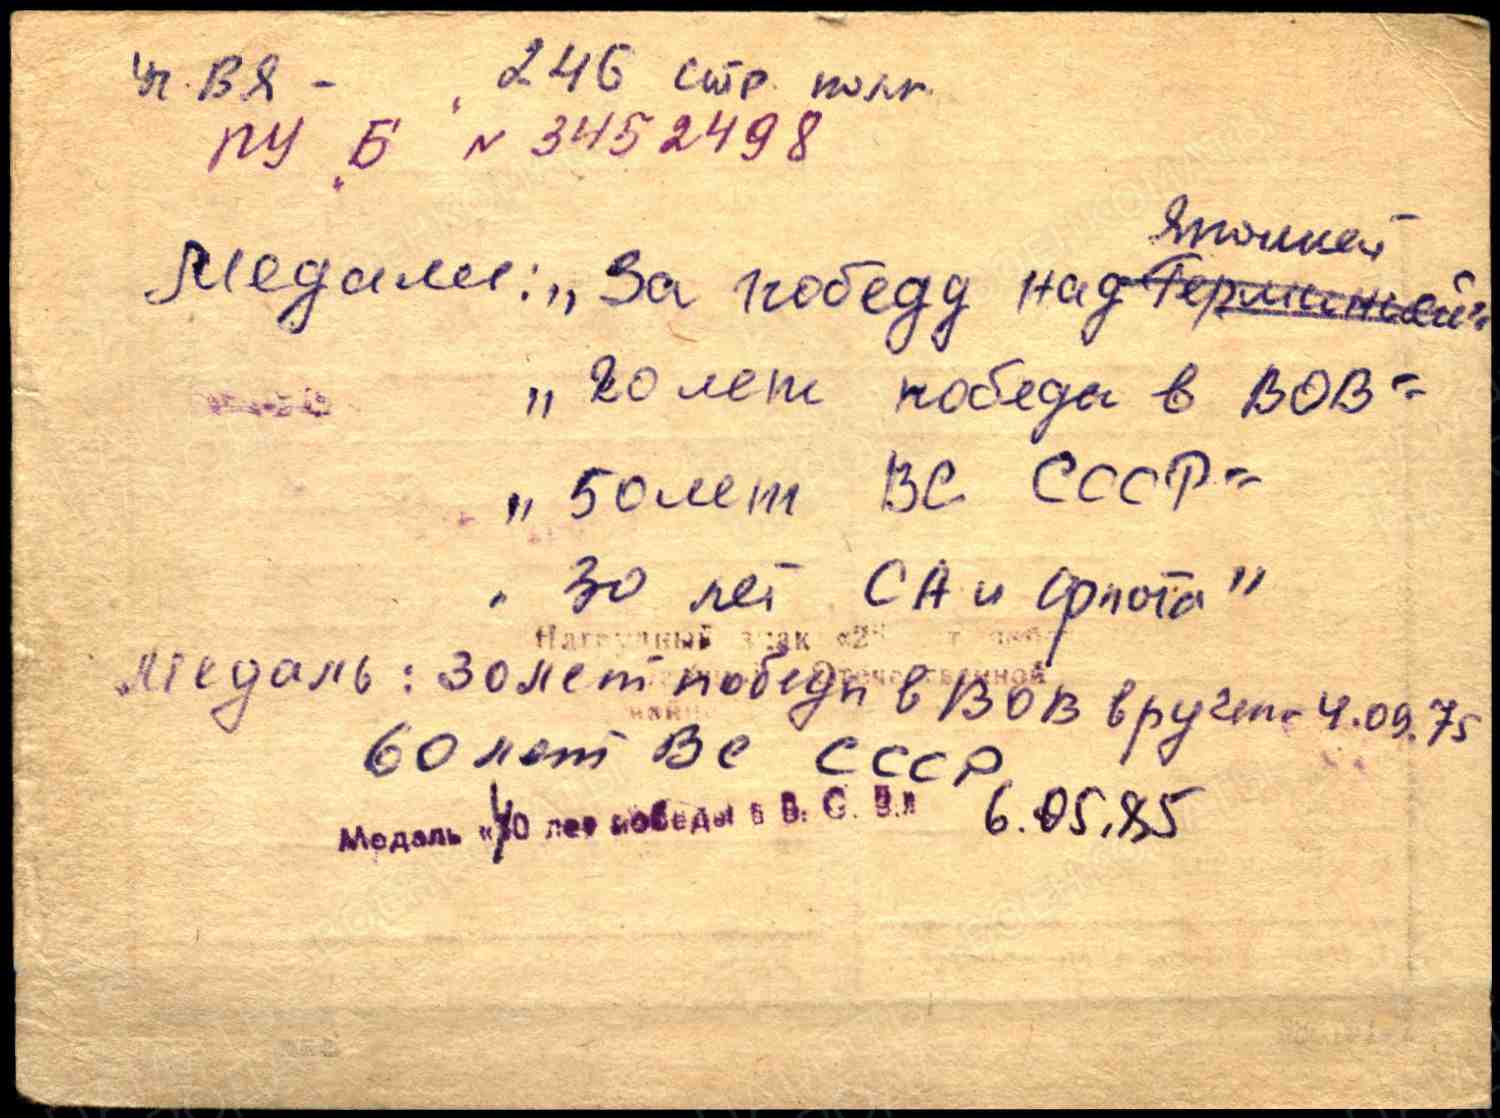 Уч. ВЯ - 246 стр. полк.
ПУ Б № 3452498
Японией
Медали: „За победу над Германией"
„20 лет победы в ВОВ"
„50 лет ВС СССР"
„30 лет СА и Флота"
Нагрудный знак «2
Отечественной
Медаль: 30 лет победы в ВОВ вручен 4.09.75
60 лет ВС СССР
Медаль «40 лет победы в В. О. В.» 6.05.85